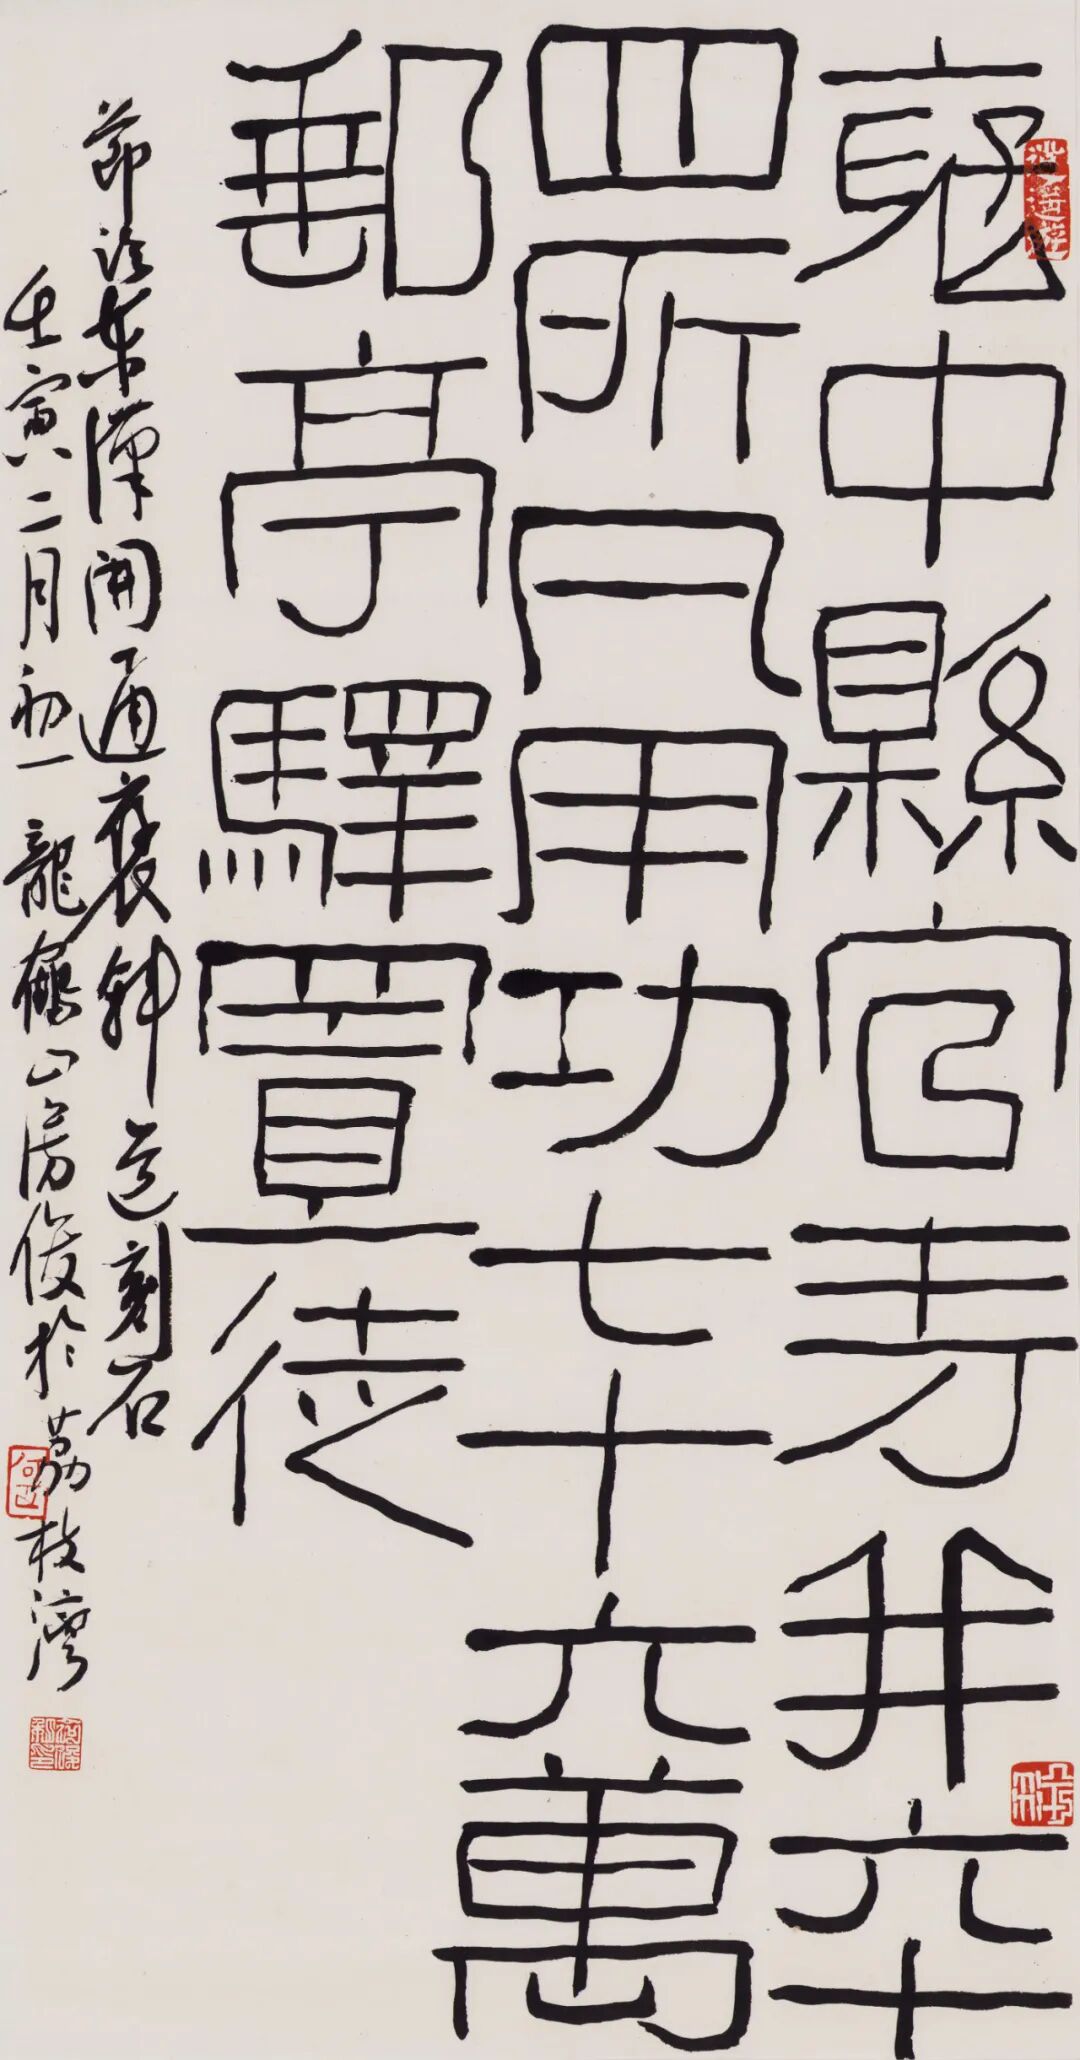 褒中縣官寺并六十
四所凡用功七十六萬
郵亭驛置徒
節臨東漢開通褒斜道刻石
壬寅二月初一龍鶴山房俊於荔枝灣
逍遙遊